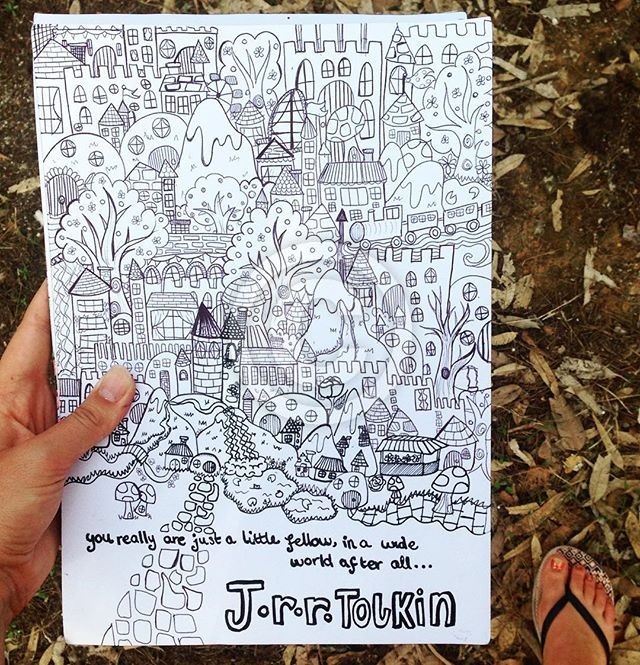 you really are just a little fellow, in a wide
world after all...
J.r.r. TOLKIN